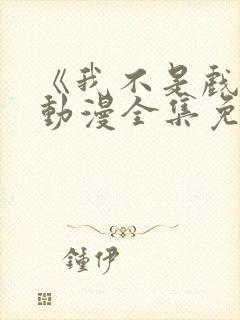 《我不是戲
動漫全集免
鍾伊